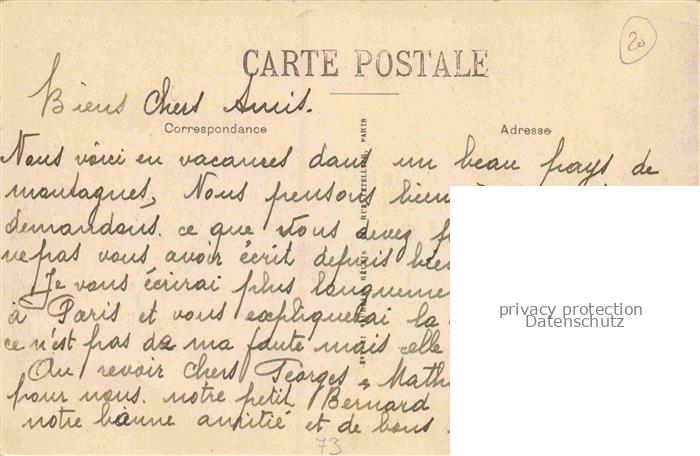 20
CARTE POSTALE
Biens chers Amis.
Correspondance
Adresse
Nous voici en vacances dans un beau pays de
montagnes, Nous pensons bien
demandons. ce que vous devez
ne pas vous avoir écrit depuis
Je vous écrirai plus longuement
à Paris et vous expliquerai la
ce n'est pas de ma faute mais celle
Au revoir chers Georges &
pour nous. notre petit Bernard
notre bonne amitié et de bons
73
PARIS
privacy protection
Datenschutz